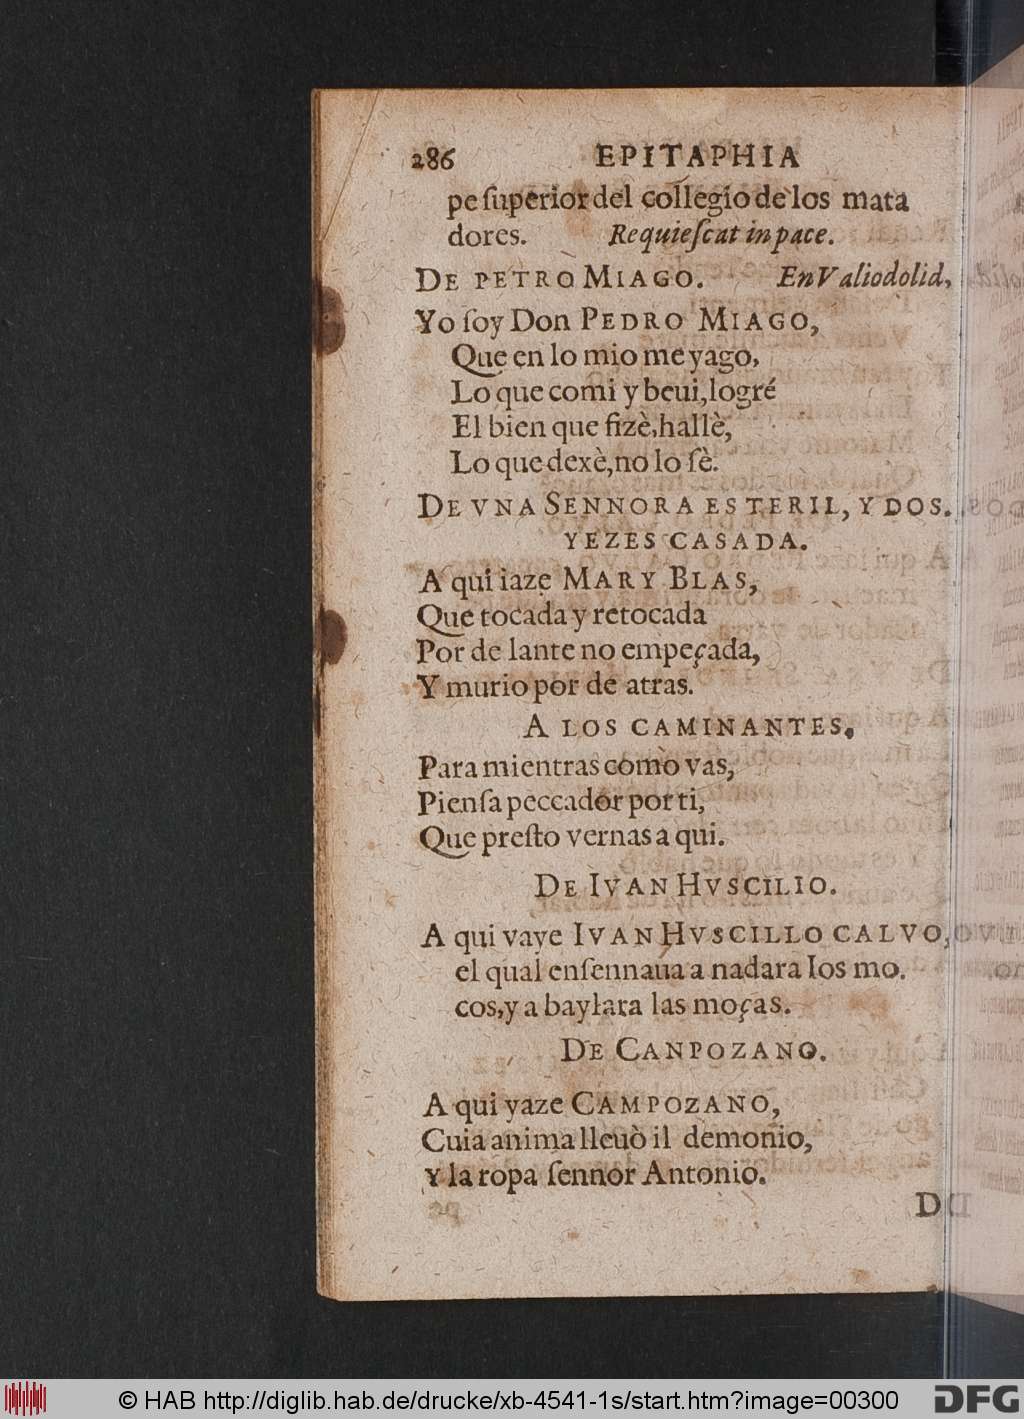 286 EPITAPHIA
pe ſuperior del collegio de los mata
dores. Requieſcat in pace.
DE PETRO MIAGO. En Valiodolid,
Yo ſoy Don PEDRO MIAGO,
Que en lo mio me yago,
Lo que comi y beui, logré
El bien que fizè, hallè,
Lo que dexè, no lo ſè.
DE VNA SENNORA ESTERIL, Y DOS.
YEZES CASADA.
A qui iaze MARY BLAS,
Que tocada y retocada
Por de lante no empeçada,
Y murio por de atras.
A LOS CAMINANTES.
Para mientras comò vas,
Pienſa peccador por ti,
Que preſto vernas a qui.
DE IVAN HVSCILIO.
A qui vaye IVAN HVSCILLO CALVO,
el qual enſennaua a nadara los mo.
cos, y a baylara las moças.
DE CANPOZANO.
A qui yaze CAMPOZANO,
Cuia anima lleuò il demonio,
Y la ropa ſennor Antonio.
D
© HAB http://diglib.hab.de/drucke/xb-4541-1s/start.htm?image=00300 DFG